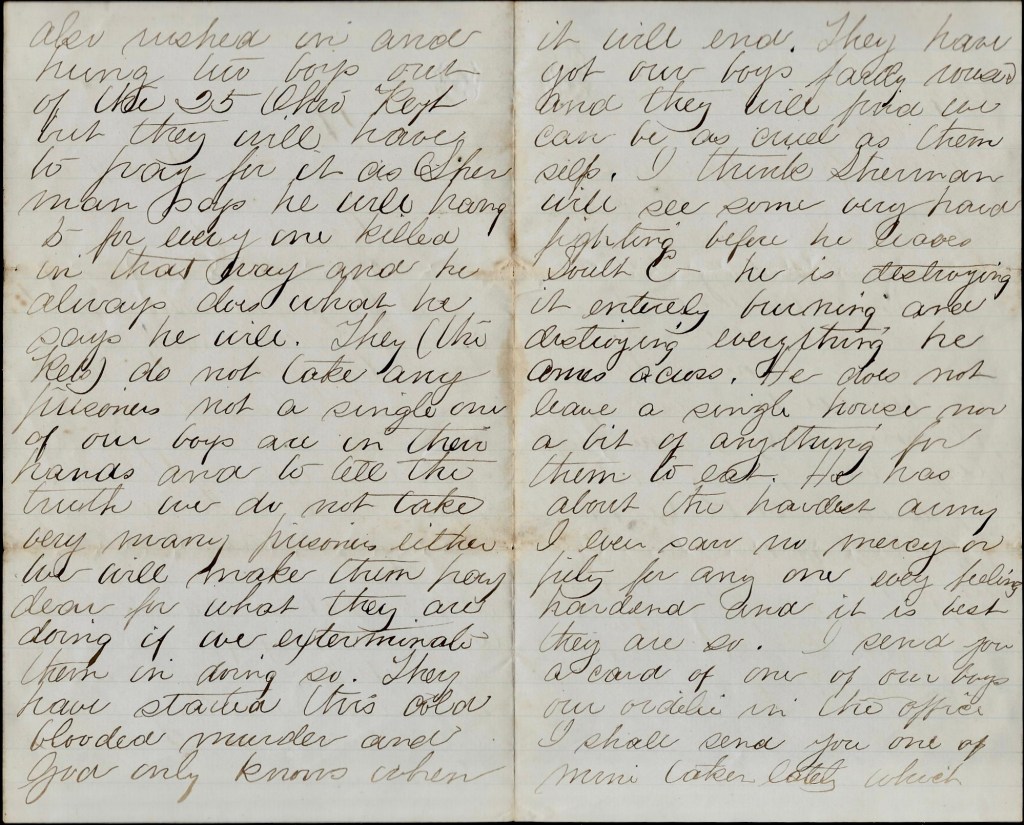 also rushed in and
hung two boys out
of the 25 Ohio Regt
but they will have
to pay for it as Sher
man says he will hang
5 for every one killed
in that way and he
always does what he
says he will. They (the
Rebs) do not take any
prisoners not a single one
of our boys are in their
hands and to tell the
truth we do not take
very many prisoners either
We will make them pay
dear for what they are
doing if we exterminate
them in doing so. They
have started this cold
blooded murder and
God only knows when
it will end. They have
got our boys fairly roused
and they will find we
can be as cruel as them
selfs. I think Sherman
will see some very hard
fighting before he leaves
South C he is destroying
it entirely burning and
destroying everything he
comes across. He does not
leave a single house nor
a bit of anything for
them to eat. He has
about the hardest army
I ever saw no mercy or
pity for any one every feeling
hardend and it is best
they are so. I send you
a card of one of our boys
our ordelie in the office
I shall send you one of
mine taken lately which